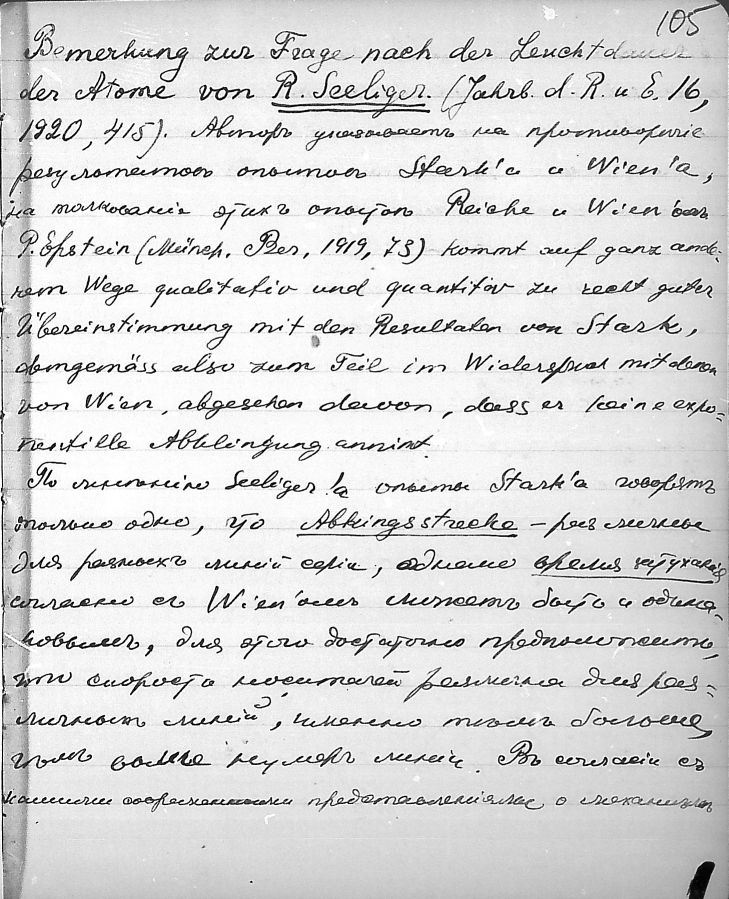 105
Bemerkung zur Frage nach der Leuchtdauer
der Atome von R. Seeliger. (Jahrb. d. R. u E. 16,
1920, 415). Авторъ указываетъ на противорѣчіе
результатовъ опытовъ Stark'а и Wien'а,
на толкованія этихъ опытовъ Reiche и Wien'омъ
P. Epstein (Münch. Ber, 1919, 73) kommt auf ganz ande-
rem Wege qualitativ und quantitiv zu recht guter
Übereinstimmung mit den Resultaten von Stark,
demgemäss also zum Teil im Widerspruch mit denen
von Wien, abgesehen davon, dass er keine expo=
nentille Abklingung annimt.
По мнѣнію Seeliger'а опыты Stark'а говорятъ
только одно, что Abkingsstrecke – различны
для разныхъ линій серіи, однако время затуханія
согласно съ Wien'омъ можетъ быть и одина-
ковымъ, для этого достаточно предположить,
что скорость носителей различна для раз=
личныхъ линій, именно тѣмъ больше,
чѣмъ выше нумеръ линіи. Въ согласіи съ
нашими современными представленіями о механизмѣ